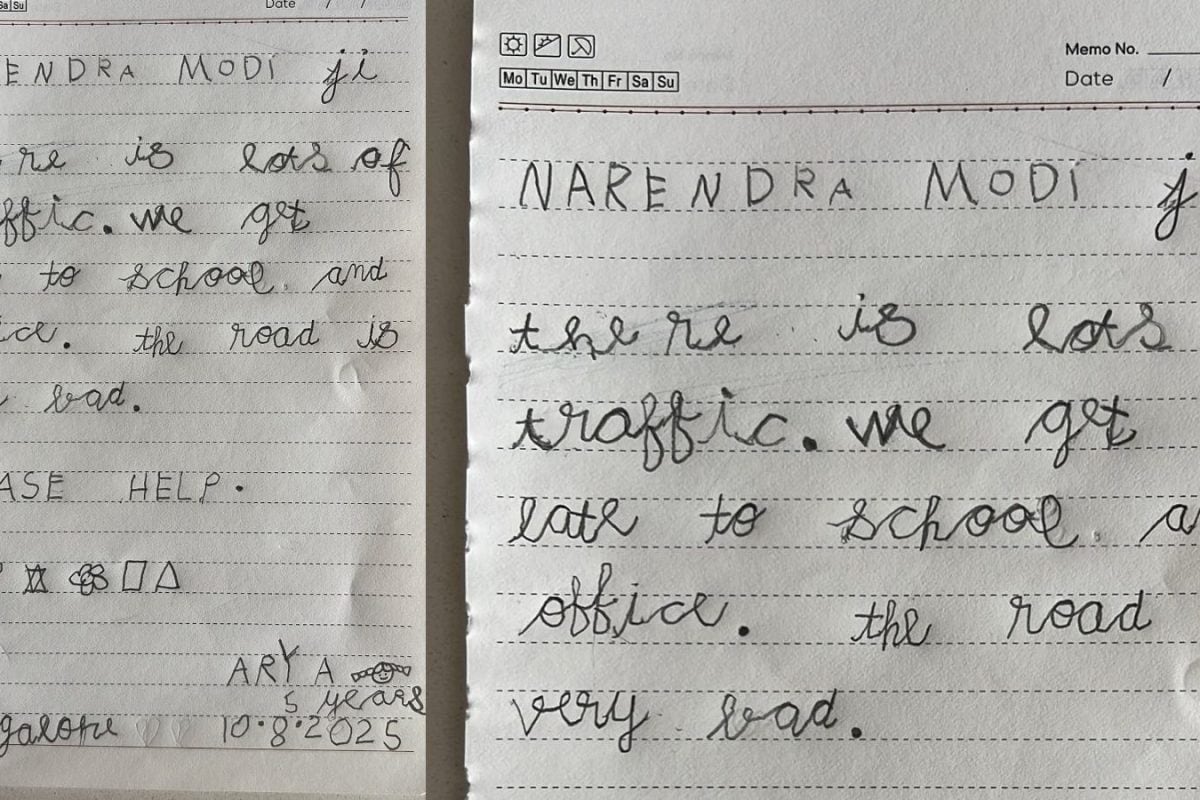 Sa Su
Date / /
ENDRA MODI ji
re is lots of
ffic. we get
to school and
ice. the road is
bad.
ASE HELP.
ARYA
5 years
galore 10.8.2025
Memo No.
Mo Tu We Th Fr Sa Su
Date /
NARENDRA MODI j
there is lots
traffic. we get
late to school a
office. the road
very bad.